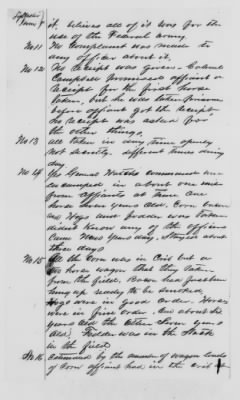 it. believes all of it was for the
use of the Federal army
No 11 No Complaint was made to
any officer about it.
No 12 No Receipt was given - Colonel
Campbell promised affiant a
receipt for the first horse
taken, but he was taken
before affiant got the receipt.
No receipt was asked for
the other things.
No 13 All taken in day time openly
not secretly different times during
day
No 14 Yes General command was
encamped in about one mile
from affiants at time one
horse seven years old. Corn taken
and Hogs and fodder was taken
didnt know any of the officers
Came News years day, Stayed about
three days
No 15 All the Corn was in Crib but
two horse wagon that they taken
from the field, Bacon had just been
hung up ready to be smoked
Hogs were in good order. Horses
were in fine order. One about six
years old the other seven years
old. Fodder was in the Stack
in the field
No 16 estimated by the number of wagon loads
of Corn affiant had in the crib